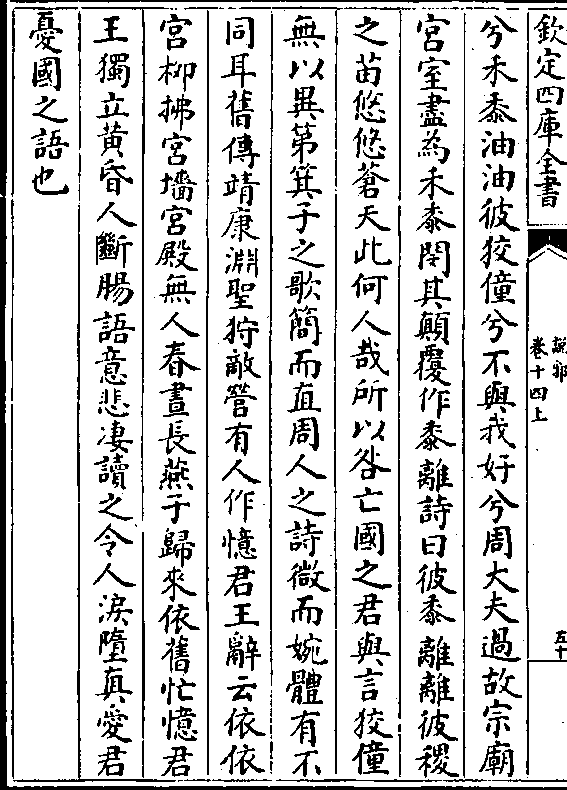 欽定四庫全書
說郛
卷十四上
五十
兮禾黍油油彼狡僮兮不與我好兮周大夫過故宗廟
宮室盡為禾黍閔其顛覆作黍離詩曰彼黍離離彼稷
之苗悠悠蒼天此何人哉所以咎亡國之君與言狡僮
無以異第箕子之歌簡而直周人之詩微而婉體有不
同耳舊傳靖康淵聖狩敵營有人作憶君王辭云依依
宮柳拂宮墻宮殿無人春晝長燕子歸來依舊忙憶君
王獨立黃昏人斷腸語意悲凄讀之令人淚墮真愛君
憂國之語也